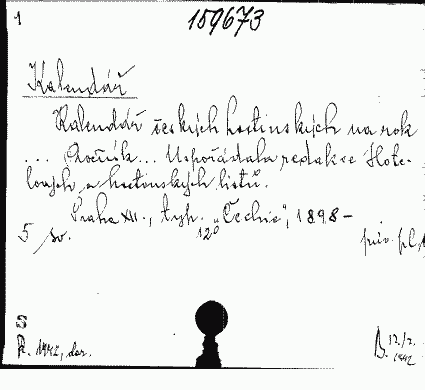 1 159673
Kalendář
Kalendář českých hostinských na rok
... Ročník... Uspořádala redakce Hote-
lových a hostinských listů.
Praha XII., typ. "Čechie", 1898-
5 sv. 12° pův. pl.
R. 1942, dar. B. 12./2.
1942